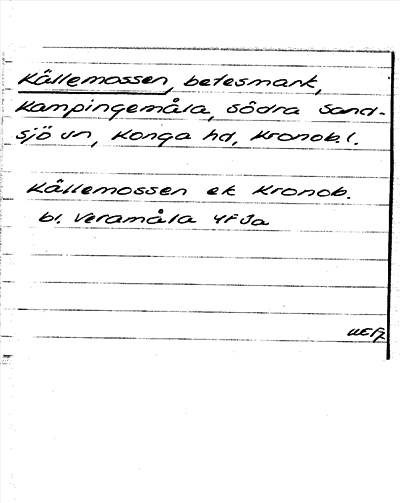 Källemossen, betesmark,
Kampingemåla, Södra Sand-
sjö sn, Konga hd, Kronob. l.
Källemossen ek Kronob.
bl. Veramåla 4F Ja